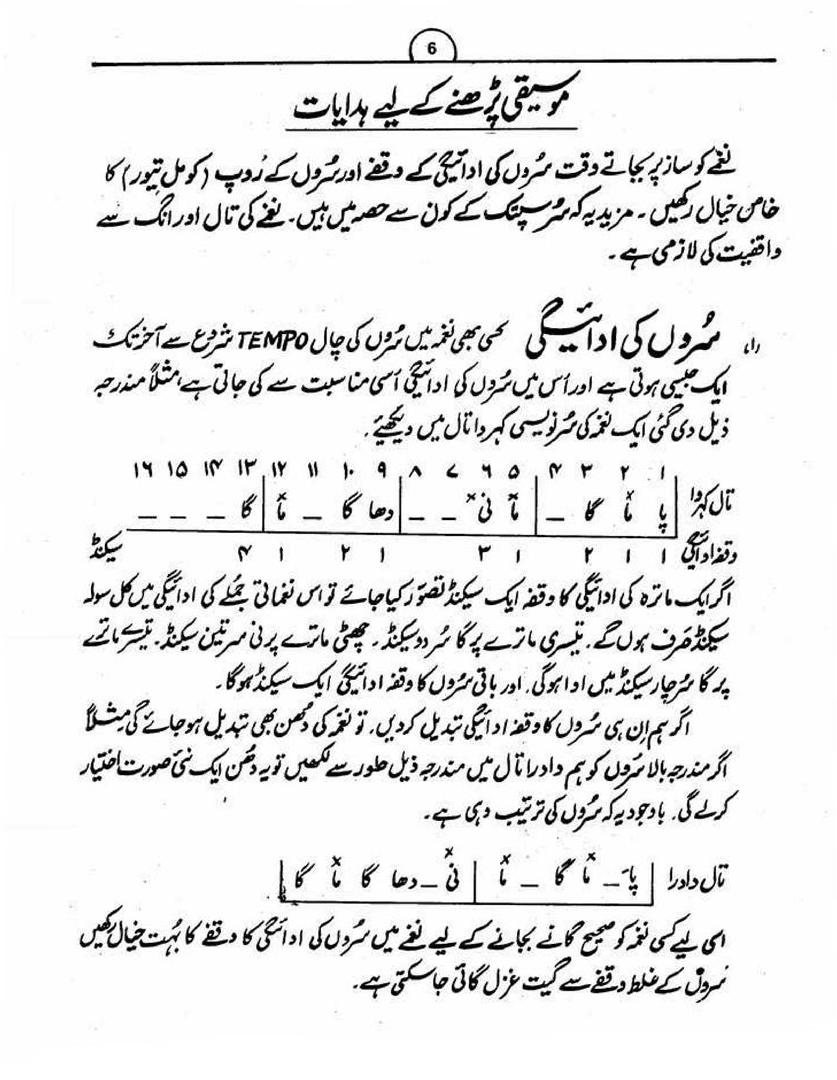 6
موسیقی پڑھنے کے لیے ہدایات
نغمے کو ساز پر بجاتے وقت سُروں کی ادائیگی کے وقفے اور سُروں کے رُوپ (کومل تیور) کا
خاص خیال رکھیں۔ مزید یہ کہ سُر سپتک کے کون سے حصہ میں ہیں۔ نغمے کی تال اور انگ سے
واقفیت کی لازمی ہے۔
(۱) سُروں کی ادائیگی کسی بھی نغمہ میں سُروں کی چال TEMPO شروع سے آخر تک
ایک جیسی ہوتی ہے اور اُس میں سُروں کی ادائیگی اُسی مناسبت سے کی جاتی ہے، مثلاً مندرجہ
ذیل دی گئی ایک نغمہ کی سُر نویسی کہروا تال میں دیکھیئے۔
۱ ۲ ۳ ۴ ۵ ۶ ۷ ۸ ۹ ۱۰ ۱۱ ۱۲ ۱۳ ۱۴ ۱۵ ۱۶
تال کہروا پا ما× گا _ | مآ نی× _ _ | دھا گا _ ما× | گا _ _ _
وقفہ ادائیگی ۱ ۱ ۲ ۱ ۳ ۱ ۲ ۱ ۴ سیکنڈ
اگر ایک ماترہ کی ادائیگی کا وقفہ ایک سیکنڈ تصوّر کیا جائے تو اس نغماتی جُملے کی ادائیگی میں کل سولہ
سیکنڈ صرف ہوں گے۔ تیسری ماترے پر گا سُر دو سیکنڈ۔ چھٹی ماترے پر نی سُر تین سیکنڈ۔ تیسرے ماترے
پر گا سُر چار سیکنڈ میں ادا ہوگی۔ اور باقی سُروں کا وقفہ ادائیگی ایک سیکنڈ ہوگا۔
اگر ہم اِن ہی سُروں کا وقفہ ادائیگی تبدیل کردیں۔ تو نغمہ کی دُھن بھی تبدیل ہو جائے گی مثلاً
اگر مندرجہ بالا سُروں کو ہم دادرا تال میں مندرجہ ذیل طور سے لکھیں تو یہ دُھن ایک نئی صورت اختیار
کرلے گی۔ باوجود یہ کہ سُروں کی ترتیب وہی ہے۔
تال دادرا | پا _ ما× گا _ ما× | نی× _ دھا گا ما× گا |
اسی لیے کسی نغمہ کو صحیح گانے بجانے کے لیے نغمے میں سُروں کی ادائیگی کا وقفے کا بہُت خیال رکھیں
سُروں کے غلط وقفے سے گیت غزل گائی جاسکتی ہے۔